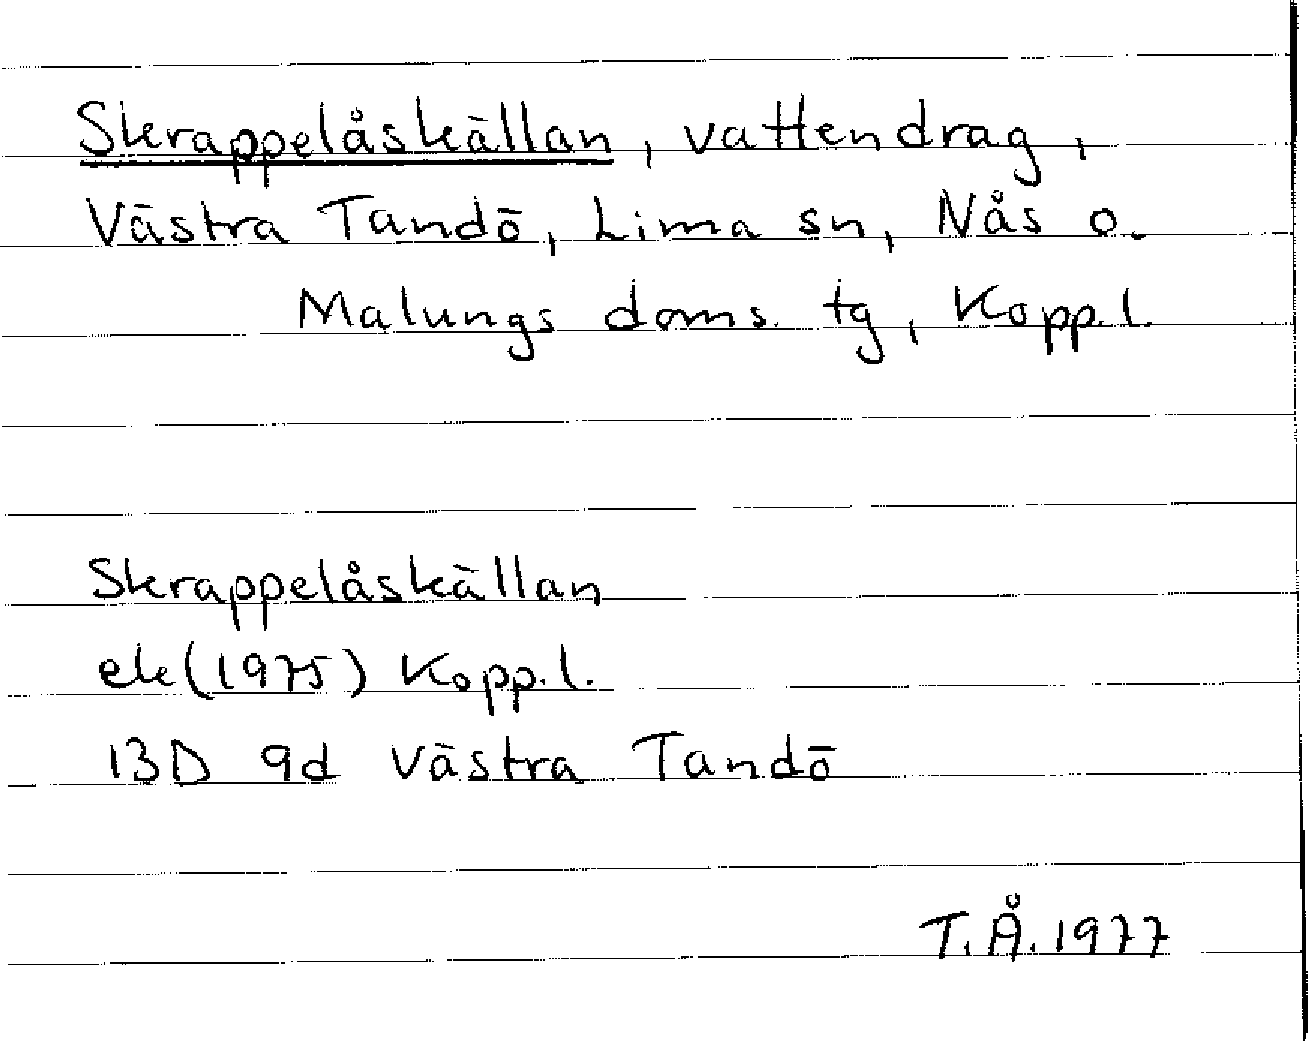 Skrappelåskällan, vattendrag,
Västra Tandö, Lima sn, Nås o.
Malungs doms. tg, Kopp.l.
Skrappelåskällan
ek(1975) Kopp.l.
13D 9d Västra Tandö
T.Å.1977